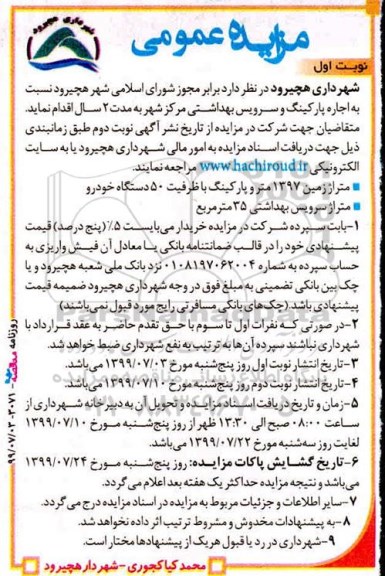 شهرداری هچیرود
مزایده عمومی
نوبت اول
شهرداری هچیرود در نظر دارد برابر مجوز شورای اسلامی شهر هچیرود نسبت
به اجاره پارکینگ و سرویس بهداشتی مرکز شهر به مدت ۲ سال اقدام نماید.
متقاضیان جهت شرکت در مزایده از تاریخ نشر آگهی نوبت دوم طبق زمانبندی
ذیل جهت دریافت اسناد مزایده به امور مالی شهرداری هچیرود یا به سایت
الکترونیکی www.hachiroud.ir مراجعه نمایند.
متراژ زمین ۱۳۹۷ متر و پارکینگ با ظرفیت ۵۰ دستگاه خودرو
متراژ سرویس بهداشتی ۳۵ مترمربع
۱-بابت سپرده شرکت در مزایده خریدار می‌بایست ۵٪ (پنج درصد) قیمت
پیشنهادی خود را در قالب ضمانتنامه بانکی یا معادل آن فیش واریزی به
حساب سپرده به شماره ۰۱۰۸۱۹۷۰۶۲۰۰۴ نزد بانک ملی شعبه هچیرود و یا
چک بین بانکی تضمینی به مبلغ فوق در وجه شهرداری هچیرود ضمیمه قیمت
پیشنهادی باشد (چک‌های بانکی مسافرتی رایج مورد قبول نمی‌باشند)
۲-در صورتی که نفرات اول تا سوم با حق تقدم حاضر به عقد قرارداد با
شهرداری نباشند سپرده آن‌ها به ترتیب به نفع شهرداری ضبط خواهد شد.
۳-تاریخ انتشار نوبت اول روز پنج‌شنبه مورخ ۱۳۹۹/۰۷/۰۳ می‌باشد.
۴-تاریخ انتشار نوبت دوم روز پنج‌شنبه مورخ ۱۳۹۹/۰۷/۱۰ می‌باشد.
۵-زمان و تاریخ دریافت اسناد مزایده و تحویل آن به دبیرخانه شهرداری از
ساعت ۰۸:۰۰ صبح الی ۱۳:۳۰ ظهر از روز پنج‌شنبه مورخ ۱۳۹۹/۰۷/۱۰
لغایت روز سه‌شنبه مورخ ۱۳۹۹/۰۷/۲۲ می‌باشد.
۶-تاریخ گشایش پاکات مزایده: روز پنج‌شنبه مورخ ۱۳۹۹/۰۷/۲۴
می‌باشد و نتیجه مزایده حداکثر یک هفته بعد اعلام می‌گردد.
۷-سایر اطلاعات و جزئیات مربوط به مزایده در اسناد مزایده درج می‌گردد.
۸-به پیشنهادات مخدوش و مشروط ترتیب اثر داده نخواهد شد.
۹-شهرداری در رد یا قبول هر یک از پیشنهادها مختار است.
محمد کیاکجوری - شهردار هچیرود
روزنامه مناقصه مزایده ۳۰۷۱-۹۹/۰۷/۰۳